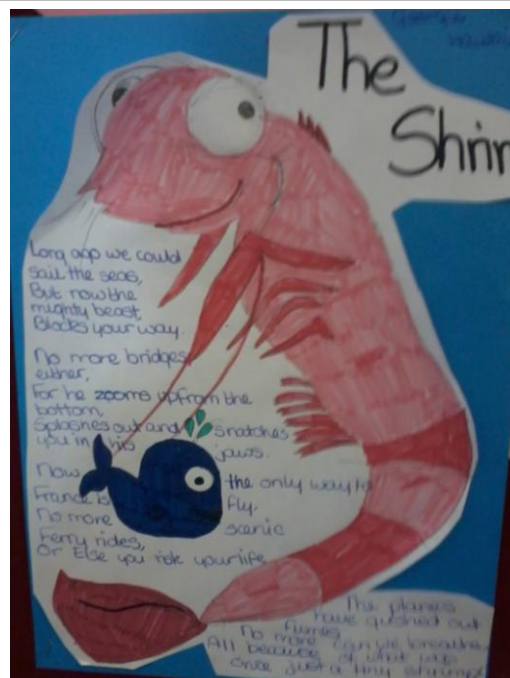 The
Shrim
Long ago we could
sail the seas,
But now the
mighty beast,
Blocks your way.
No more bridges
either,
For he zooms up from the
bottom
Splashes out and snatches
you in his jaws.
Now the only way to
France is fly,
No more scenic
Ferry rides,
Or Else you risk your life
The planes
have gushed out
fumes
No more can we breathe
All because of what was
once just a tiny shrimp